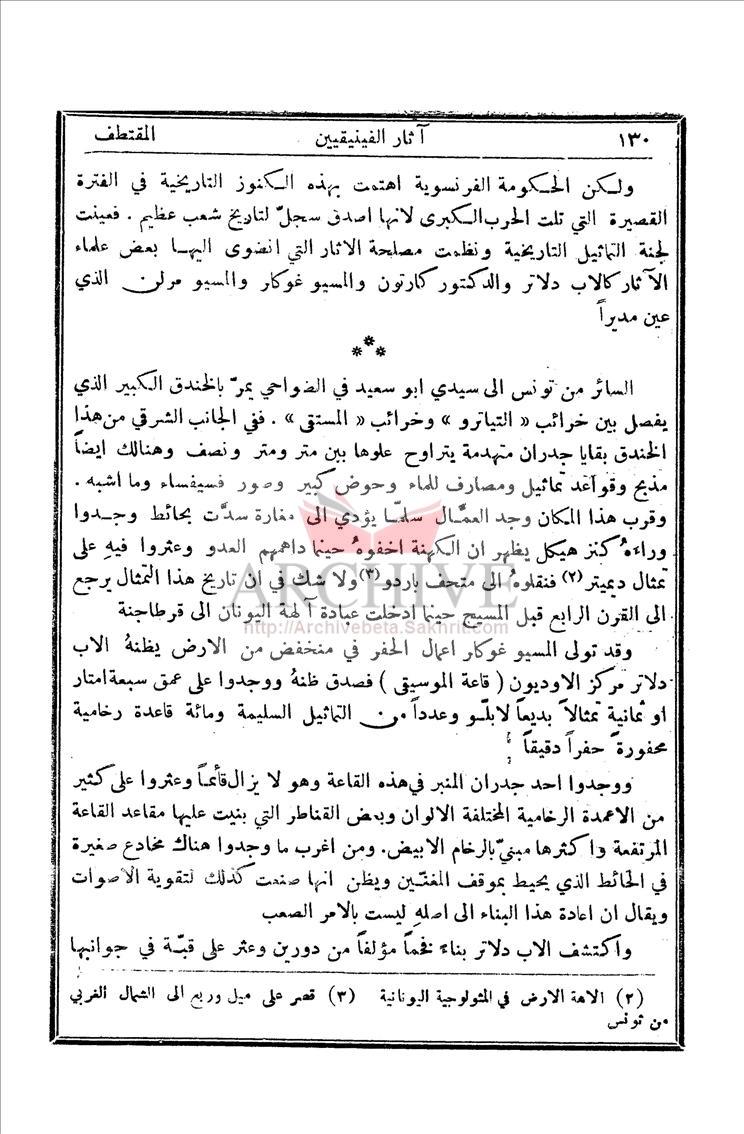 ١٣٠ آثار الفينيقيين المقتطف
ولكن الحكومة الفرنسوية اهتمت بهذه الكنوز التاريخية في الفترة
القصيرة التي تلت الحرب الكبرى لانها اصدق سجلّ لتاريخ شعب عظيم . فعينت
لجنة التماثيل التاريخية ونظمت مصلحة الاثار التي انضوى اليها بعض علماء
الآثار كالاب دلاتر والدكتور كارتون والمسيو غوكار والمسيو مرلن الذي
عين مديراً
***
السائر من تونس الى سيدي ابو سعيد في الضواحي يمرّ بالخندق الكبير الذي
يفصل بين خرائب « التياترو » وخرائب « المستقى » . ففي الجانب الشرقي من هذا
الخندق بقايا جدران متهدمة يتراوح علوها بين متر ومتر ونصف وهنالك ايضاً
مذبح وقواعد تماثيل ومصارف للماء وحوض كبير وصور فسيفساء وما اشبه .
وقرب هذا المكان وجد العمَّال سلّماً يؤدي الى مغارة سدَّت بحائط وجدوا
وراءهُ كنز هيكل يظهر ان الكهنة اخفوهُ حينما داهمهم العدو وعثروا فيهِ على
تمثال ديميتر(٢) فنقلوهُ الى متحف باردو(٣) ولا شك في ان تاريخ هذا التمثال يرجع
الى القرن الرابع قبل المسيح حينما ادخلت عبادة آلهة اليونان الى قرطاجنة
وقد تولى المسيو غوكار اعمال الحفر في منخفض من الارض يظنهُ الاب
دلاتر مركز الاوديون ( قاعة الموسيقى ) فصدق ظنهُ ووجدوا على عمق سبعة امتار
او ثمانية تمثالاً بديعاً لابلّو وعدداً من التماثيل السليمة ومائة قاعدة رخامية
محفورة حفراً دقيقاً
ووجدوا احد جدران المنبر في هذه القاعة وهو لا يزال قائماً وعثروا على كثير
من الاعمدة الرخامية المختلفة الالوان وبعض القناطر التي بنيت عليها مقاعد القاعة
المرتفعة واكثرها مبنيّ بالرخام الابيض. ومن اغرب ما وجدوا هناك مخادع صغيرة
في الحائط الذي يحيط بموقف المغنّين ويظن انها صنعت كذلك لتقوية الاصوات
ويقال ان اعادة هذا البناء الى اصلهِ ليست بالامر الصعب
واكتشف الاب دلاتر بناءً فخماً مؤلفاً من دورين وعثر على قبّة في جوانبها
(٢) الاهة الارض في المثولوجية اليونانية (٣) قصر على ميل وربع الى الشمال الغربي
من تونس
ARCHIVE
http://Archivebeta.Sakhrit.com